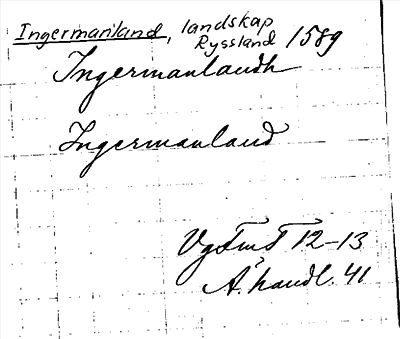 Ingermanland, landskap
Ryssland 1589
Ingermanlandh
Ingermanland
VgFmT 12-13
Å. handl. 41